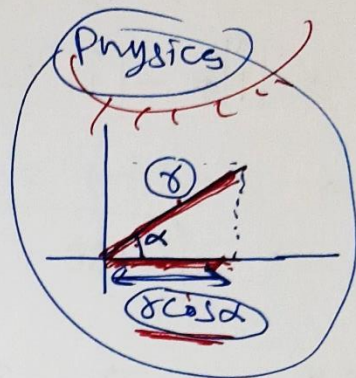 Physics
r
α
rcosα